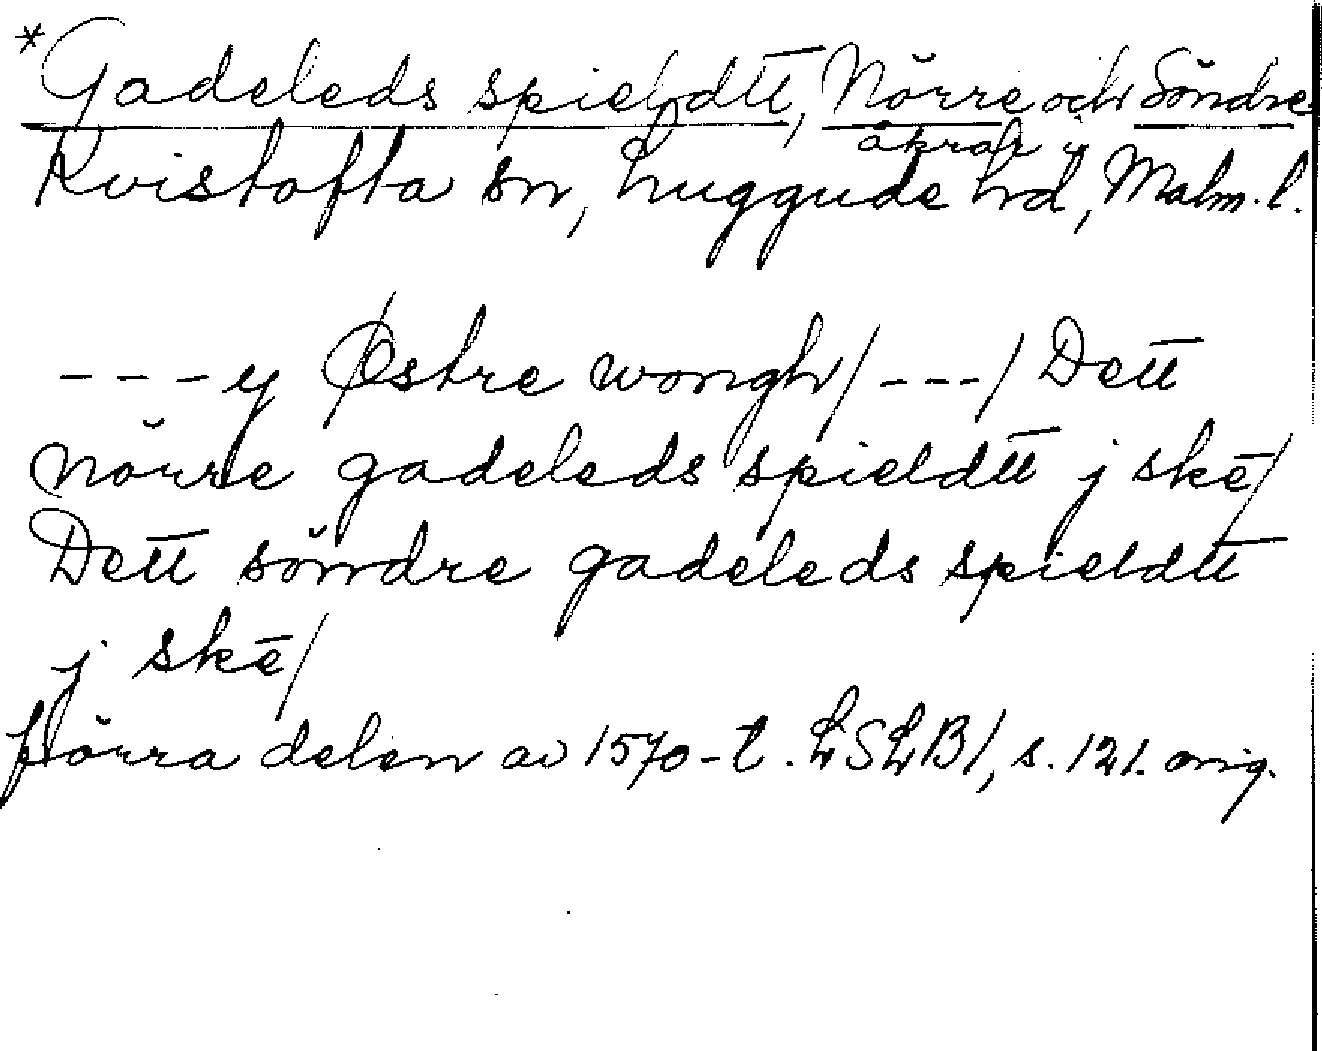 *Gadeleds spieldtt, Nörre och Söndre
åkrar i
Kvistofta sn, Luggude hd, Malm. l.
- - - y Østre wongh/ - - - / Dett
nörre gadeleds spieldtt j skē/
Dett söndre gadeleds spieldtt
j skē/
förra delen av 1570-t. LSLB1, s. 121. orig.